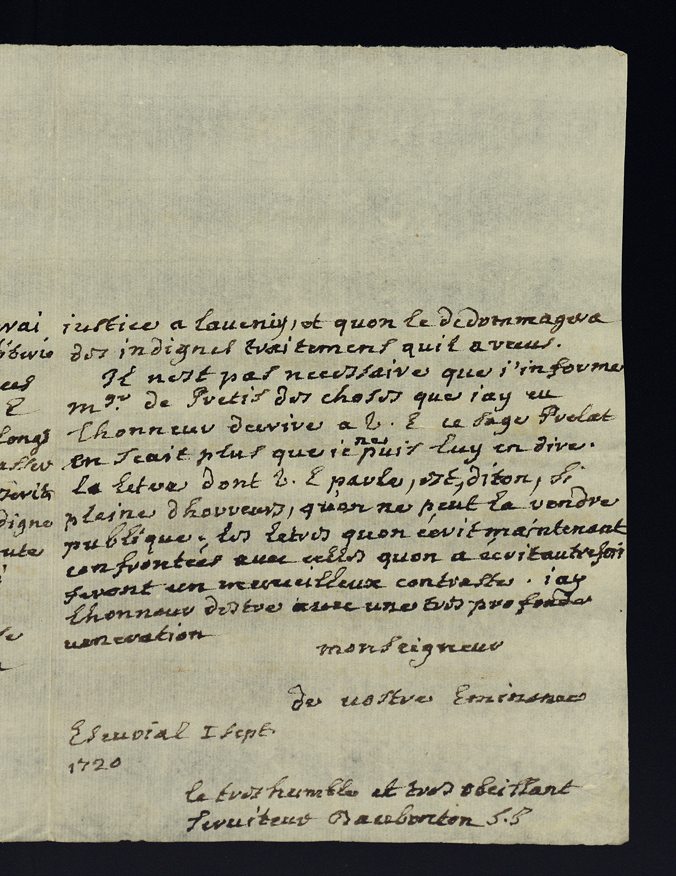 vrai
ées
E
longs
digne
iustice a lauenir, et quon le dedommagera
des indignes traitemens quil a receus.
Il nest pas necessaire que i'informe
mgr de Pretis des choses que iay eu
lhonneur decrire a V. E ce sage Prelat
en scait plus que ie ne puis luy en dire.
la letre dont V. E parle, est, diton, si
plaine dhorreurs, quon ne peut la rendre
publique; les letres quon ecrit maintenant
confrontées auec celles quon a ecrit autrefois
feront un merueilleux contraste. iay
lhonneur destre auec une tres profonde
ueneration
monseigneur
de uostre Eminence
Escurial 1 sept.
1720
le tres humble et tres obeissant
seruiteur Daubenton S.J